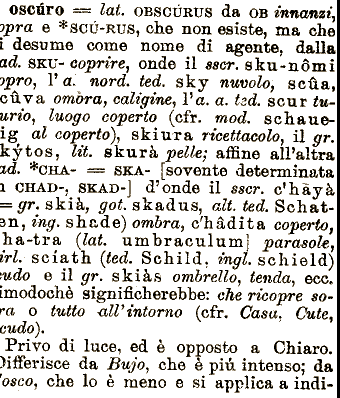 oscúro = lat. OBSCÚRUS da OB innanzi,
opra e *SCÚ-RUS, che non esiste, ma che
i desume come nome di agente, dalla
ad. SKU- coprire, onde il sscr. sku-nômi
opro, l'a. nord. ted. sky nuvolo, scûa,
cûva ombra, caligine, l'a. a. ted. scur tu-
urio, luogo coperto (cfr. mod. schaue-
ig al coperto), skiura ricettacolo, il gr.
kýtos, lit. skurà pelle; affine all'altra
ad. *CHA- = SKA- [sovente determinata
n CHAD-, SKAD-] d'onde il sscr. c'hâyâ
= gr. skià, got. skadus, alt. ted. Schat-
en, ing. shade) ombra, c'hâdita coperto,
ha-tra (lat. umbraculum) parasole,
irl. scíath (ted. Schild, ingl. schield)
cudo e il gr. skiàs ombrello, tenda, ecc.
imodochè significherebbe: che ricopre so-
ra o tutto all'intorno (cfr. Casa, Cute,
cudo).
Privo di luce, ed è opposto a Chiaro.
Differisce da Bujo, che è più intenso; da
osco, che lo è meno e si applica a indi-